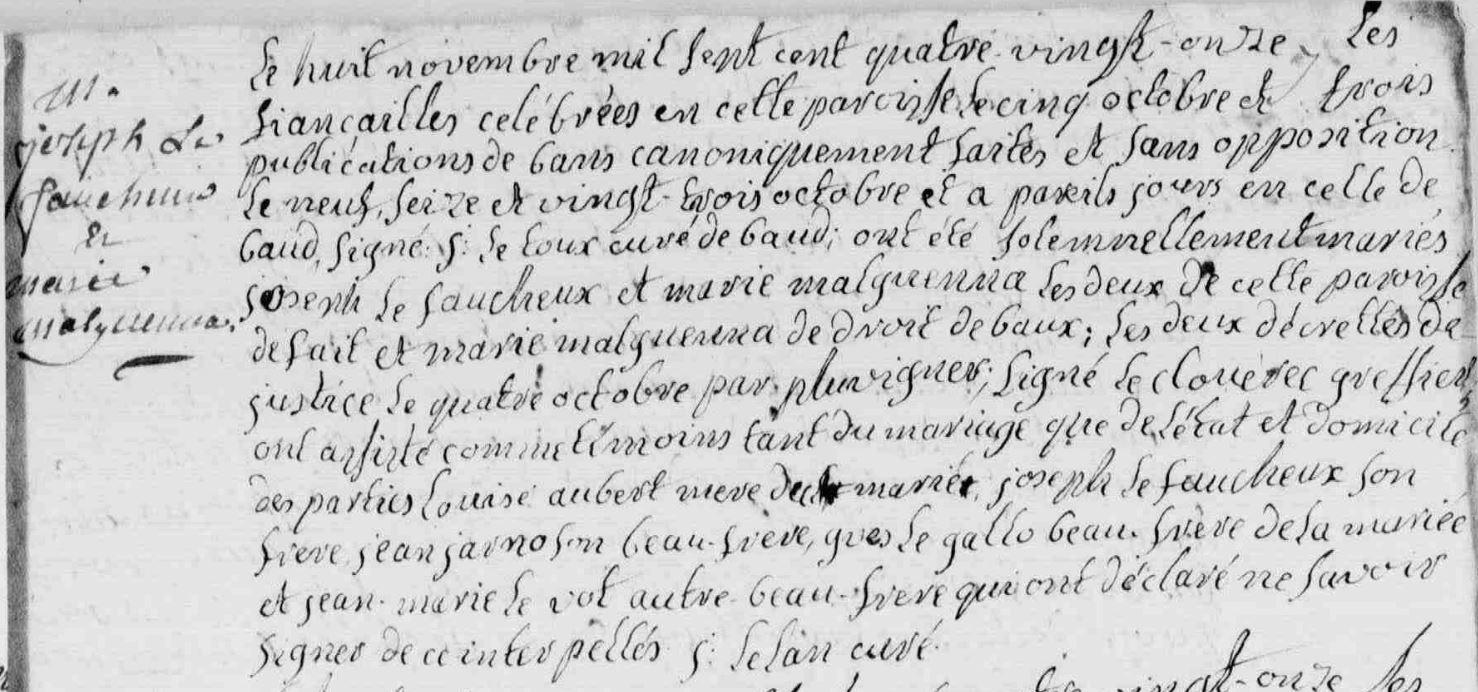 m.
joseph Le
faucheux
et
marie
malguenna.
Le huit novembre mil sept cent quatre-vingt-onze, les
fiancailles celébrées en cette paroisse le cinq octobre et trois
publications de bans canoniquement faites et sans opposition
le neuf, seize et vingt-trois octobre et a pareils jours en celle de
baud, signé: j: le toux curé de baud; ont été solemnellement mariés
joseph le faucheux et marie malguenna les deux de cette paroisse
de fait et marie malguenna de droit de baux; les deux décrettés de
justice le quatre octobre par pluvigner; signé le clouërec greffier,
ont assisté comme témoins tant du mariage que de l'état et domicile
des parties Louise aubert mere du marié, joseph le faucheux son
frere, jean jarno son beau-frere, yves le gallo beau-frère de la mariée
et jean-marie le vot autre beau-frere qui ont déclaré ne savoir
signer de ce interpellés j: le lan curé.
vingt-onze les